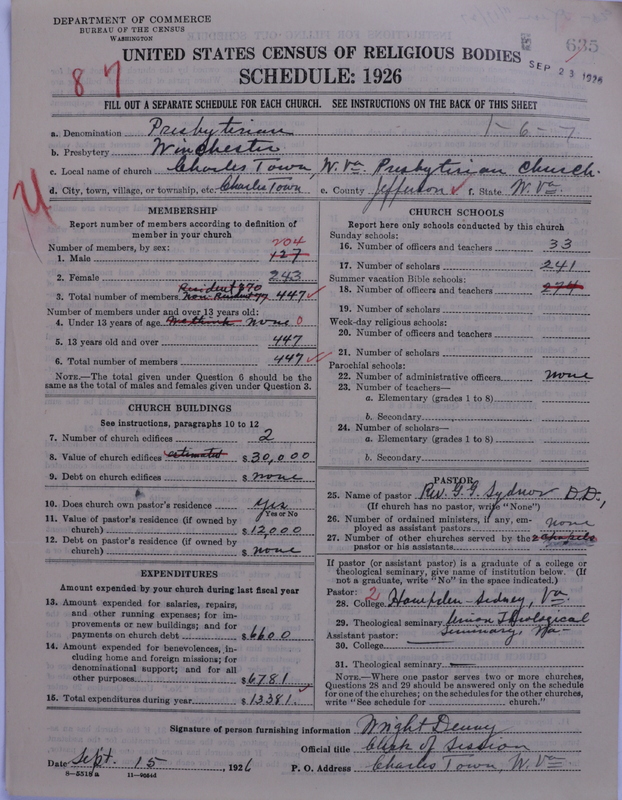 DEPARTMENT OF COMMERCE
BUREAU OF THE CENSUS
WASHINGTON
UNITED STATES CENSUS OF RELIGIOUS BODIES
SCHEDULE: 1926
635
SEP 23 1926
87
FILL OUT A SEPARATE SCHEDULE FOR EACH CHURCH. SEE INSTRUCTIONS ON THE BACK OF THIS SHEET
a. Denomination Presbyterian 1-6-7
b. Presbytery Winchester
c. Local name of church Charles Town, W. Va. Presbyterian Church.
d. City, town, village, or township, etc. Charles Town e. County Jefferson f. State W. Va.
MEMBERSHIP
Report number of members according to definition of
member in your church
Number of members, by sex:
204
1. Male 127
2. Female 243
Resident 370
3. Total number of members Non-Resident 77 447
Number of members under and over 13 years old:
4. Under 13 years of age none 0
5. 13 years old and over 447
6. Total number of members 447
NOTE.—The total given under Question 6 should be
same as the total of males and females given under Question 3.
CHURCH BUILDINGS
See instructions, paragraphs 10 to 12
7. Number of church edifices 2
8. Value of church edifices estimated $30,000
9. Debt on church edifices $ none
10. Does church own pastor's residence Yes
Yes or No
11. Value of pastor's residence (if owned by
church) $12,000
12. Debt on pastor's residence (if owned by
church) $ none
EXPENDITURES
Amount expended by your church during last fiscal year
13. Amount expended for salaries, repairs,
and other running expenses; for im-
provements or new buildings; and for
payments on church debt $6600
14. Amount expended for benevolences, in-
cluding home and foreign missions; for
denominational support; and for all
other purposes $6781
15. Total expenditures during year $13381.
CHURCH SCHOOLS
Report here only schools conducted by this church
Sunday schools:
16. Number of officers and teachers 33
17. Number of scholars 241
Summer vacation Bible schools:
18. Number of officers and teachers 274
19. Number of scholars
Week-day religious schools:
20. Number of officers and teachers
21. Number of scholars
Parochial schools:
22. Number of administrative officers none
23. Number of teachers—
a. Elementary (grades 1 to 8)
b. Secondary
24. Number of scholars—
a. Elementary (grades 1 to 8)
b. Secondary
PASTOR
25. Name of pastor Rev. G. G. Sydnor D.D.,
(If church has no pastor, write "None")
26. Number of ordained ministers, if any, em-
ployed as assistant pastors none
27. Number of other churches served by the 2 chapels
pastor or his assistants
If pastor (or assistant pastor) is a graduate of a college or
theological seminary, give name of institution below. (If
not a graduate, write "No" in the space indicated.)
Pastor: 2
28. College Hampden-Sidney, Va.
29. Theological seminary Union Theological
Assistant pastor: Seminary, Va.
30. College
31. Theological seminary
NOTE.—Where one pastor serves two or more churches,
Questions 28 and 29 should be answered only on the schedule
for one of the churches; on the schedules for the other churches,
write "See schedule for church."
Signature of person furnishing information Wright Denny
Official title Clerk of Session
Date Sept. 15, 1926 P. O. Address Charles Town, W. Va.
8-5518 a 11-9084d